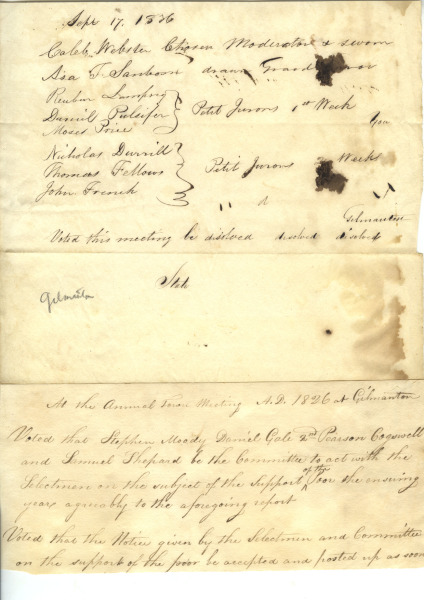 Sept 17, 1826
Caleb Webster Chosen Moderator & sworn
Asa T. Sanborn drawn Grand Juror
Reuben Lamprey
Daniel Pulsifer Petit Jurors 1st Week
Moses Price
Nicholas Durrell
Thomas Fellows Petit Jurors 2 Weeks
John French
Gilmanton
Voted this meeting be disolved desolved disolved
Gilmanton
At the Annual Town Meeting A.D. 1826 at Gilmanton
Voted that Stephen Moody Daniel Gale 2nd Pearson Cogswell
and Samuel Shepard be the Committee to act with the
Selectmen on the subject of the support of the Poor the ensuing
year agreably to the aforegoing report
Voted that the Notice given by the Selectmen and Committee
on the support of the poor be accepted and posted up as soon